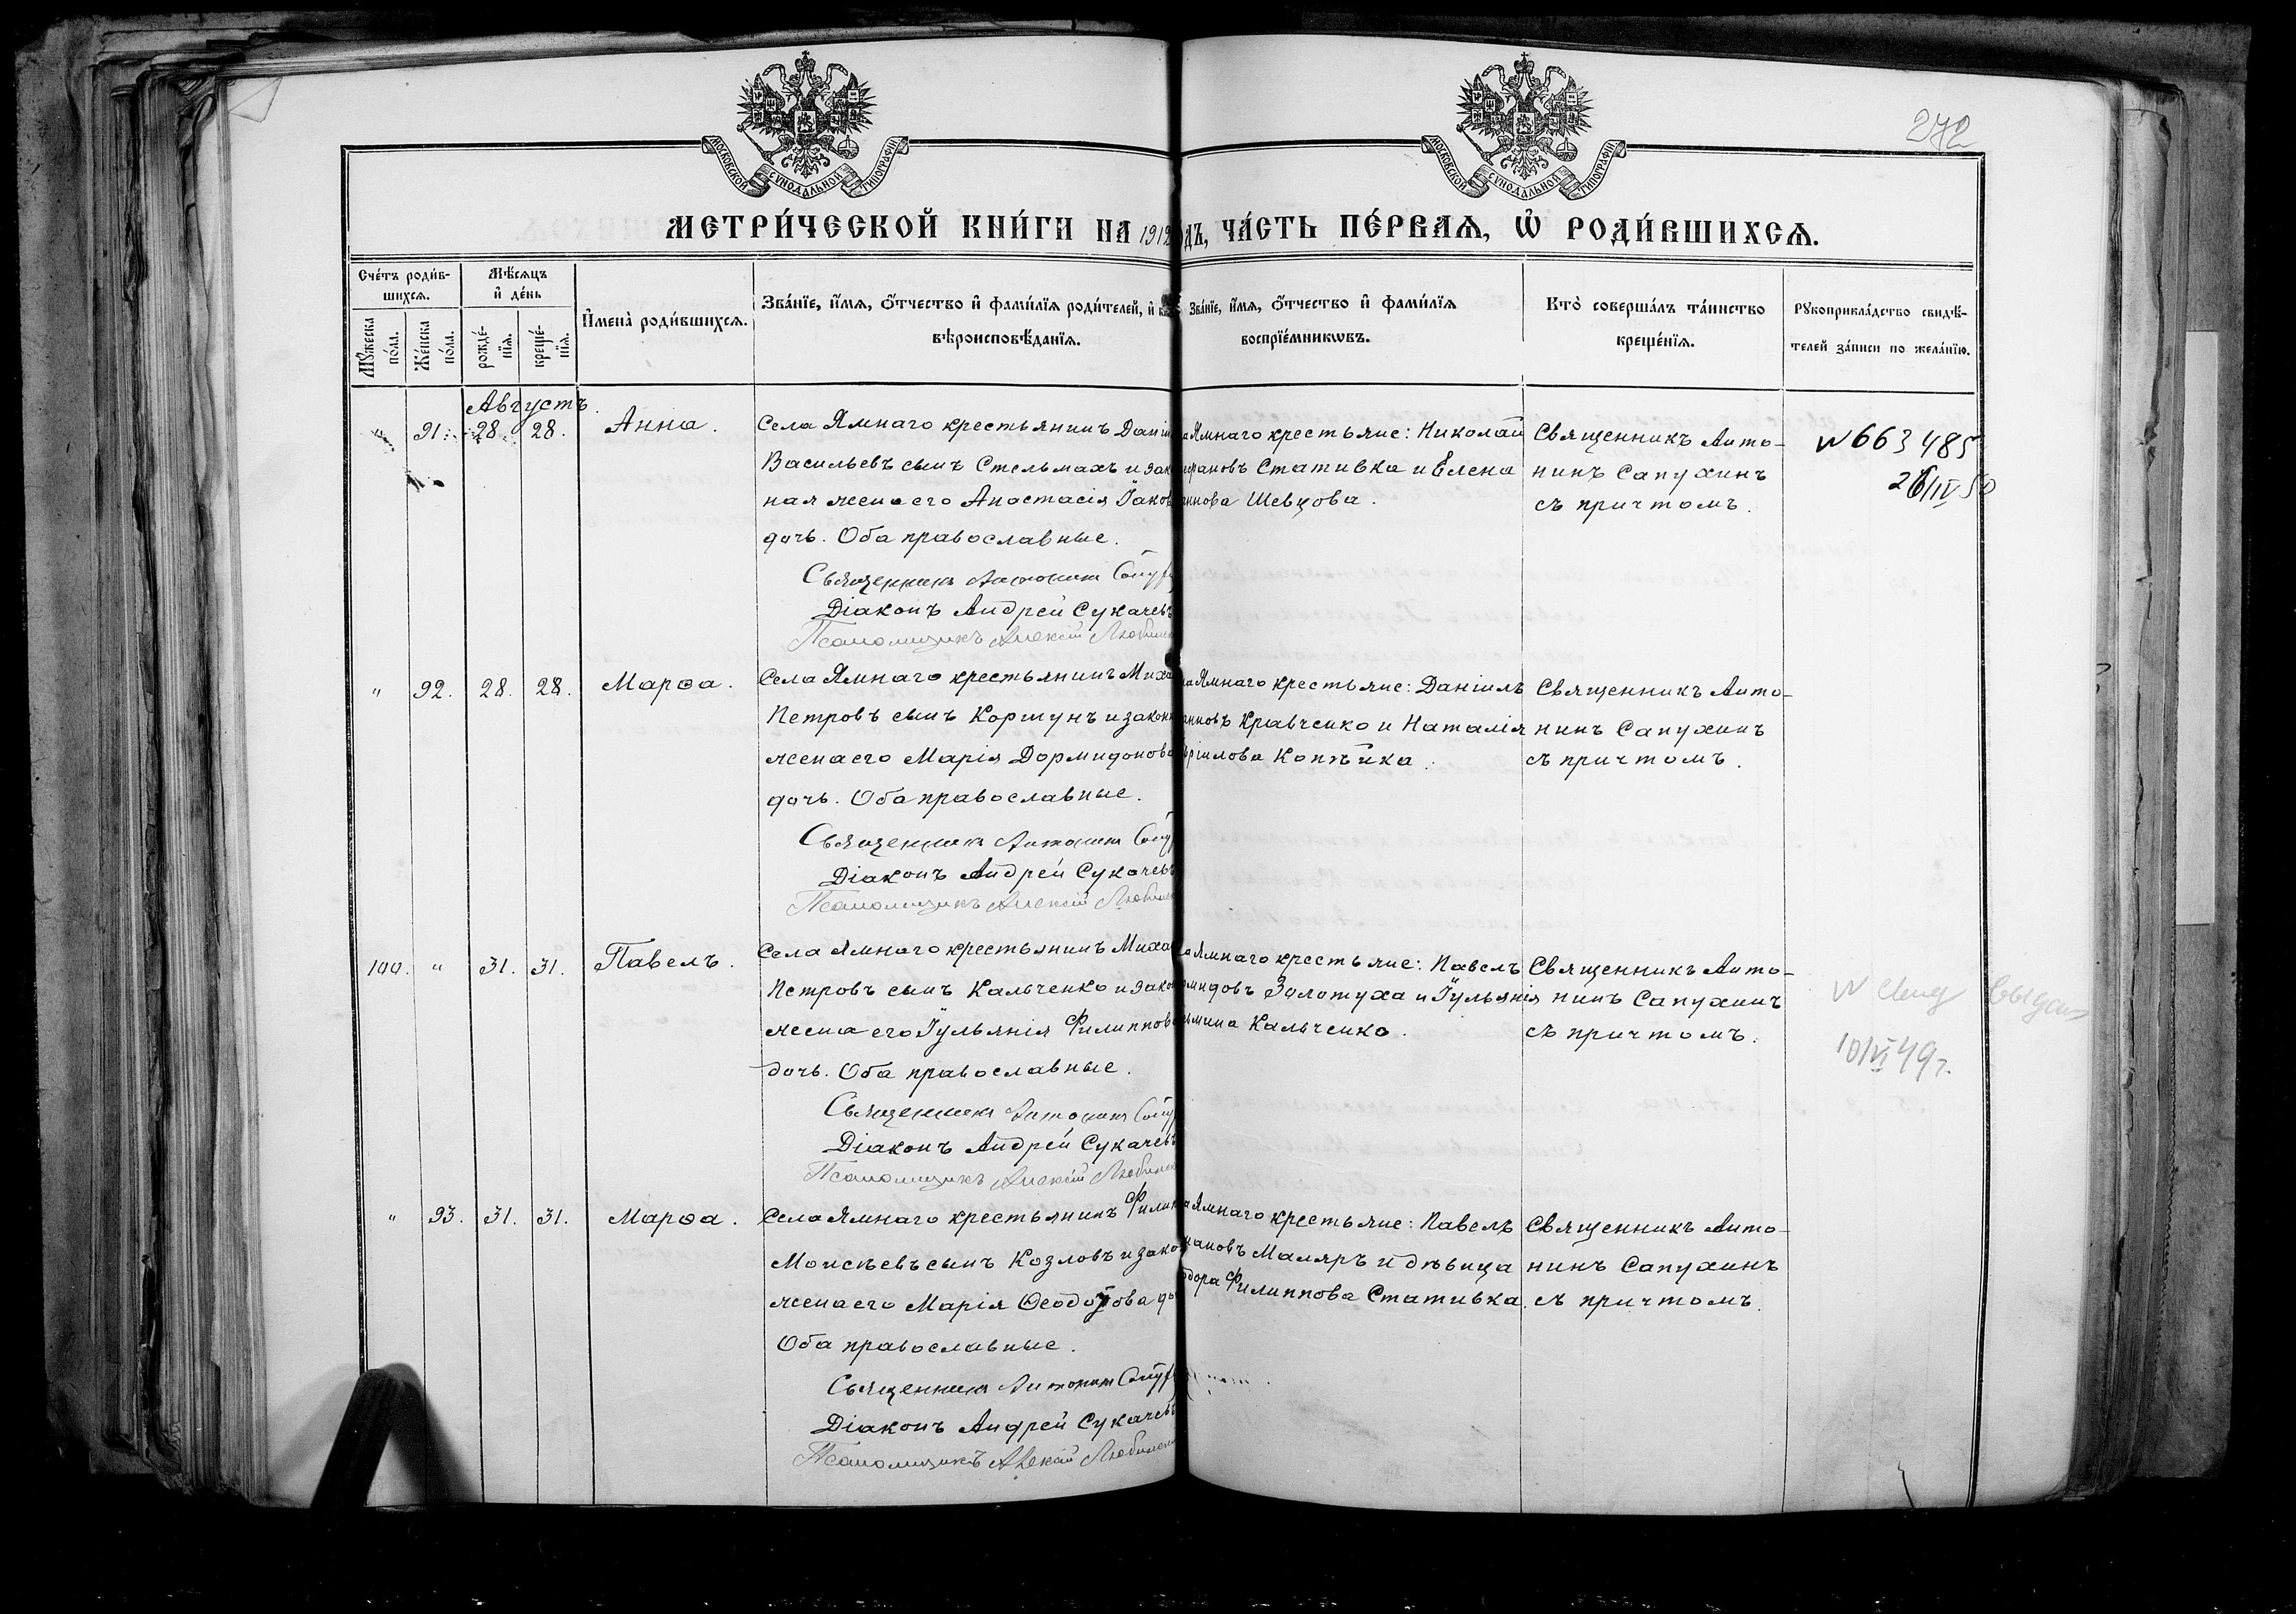 272
МОСКОВСКОЙ СѴНОДАЛЬНОЙ ТИПОГРАФІИ
МОСКОВСКОЙ СѴНОДАЛЬНОЙ ТИПОГРАФІИ
МЕТРИ́ЧЕСКОЙ КНИ́ГИ НА 1912 ДЪ, ЧА́СТЬ ПЕ́РВАѦ, Ѡ҆ РОДИ́ВШИХСѦ.
Сче́тъ роди́в-
шихсѧ.
Мѣ́сѧцъ
и҆ де́нь
Мꙋжеска по́ла.
Же́нска по́ла.
рожде́-
нїѧ.
креще́-
нїѧ.
И҆мена̀ роди́вшихсѧ.
Зва́нїе, и҆́мѧ, ѻ҆́тчество и҆ фами́лїѧ роди́телей, и҆
вѣроисповѣ́данїѧ.
Зва́нїе, и҆́мѧ, ѻ҆́тчество и҆ фами́лїѧ
воспрїе́мникѡвъ.
Кто̀ соверша́лъ та́инство
креще́нїѧ.
Рꙋкоприкла́дство свидѣ́-
телей за́писи по жела́нїю.
Августъ.
„ 91. 28. 28. Анна.
Села Ямнаго крестьянинъ Даніи
Васильевъ сынъ Стельмахъ и зак
ная жена его Анастасія Іаков
дочь. Оба православные.
Священникъ Антонинъ Сапух
Діаконъ Андрей Сукачевъ
Псаломщикъ Алексій
а Ямнаго крестьяне: Николай
ерановъ Стативка и Елена
аннова Шевцова.
Священникъ Анто-
нинъ Сапухинъ
съ причтомъ.
N 663485
26/IV 50
„ 92. 28. 28. Марѳа.
Села Ямнаго крестьянинъ Миха
Петровъ сынъ Коршунъ и законн
жена его Марія Дормидонова
дочь. Оба православные.
Священникъ Антонинъ Сапу
Діаконъ Андрей Сукачевъ
Псаломщикъ Алексій
а Ямнаго крестьяне: Даніилъ
анновъ Кравченко и Наталія
вріилова Копѣйка.
Священникъ Анто-
нинъ Сапухинъ
съ причтомъ.
100. „ 31. 31. Павелъ.
Села Ямнаго крестьянинъ Миха
Петровъ сынъ Кальченко и зако
жена его Іульянія Филиппова
дочь. Оба православные.
Священникъ Антонинъ Сапу
Діаконъ Андрей Сукачевъ
Псаломщикъ Алексій
а Ямнаго крестьяне: Павелъ
мидовъ Золотуха и Іульянія
ьмина Кальченко.
Священникъ Анто-
нинъ Сапухинъ
съ причтомъ.
10/VI 49г.
„ 93. 31. 31. Марѳа.
Села Ямнаго крестьянинъ Филип
Моисѣевъ сынъ Козловъ и зако
жена его Марія Ѳеодорова до
Оба православные.
Священникъ Антонинъ Сапух
Діаконъ Андрей Сукачевъ
Псаломщикъ Алексій
а Ямнаго крестьяне: Павелъ
кановъ Маляръ и дѣвица
одора Филиппова Стативка.
Священникъ Анто-
нинъ Сапухинъ
съ причтомъ.